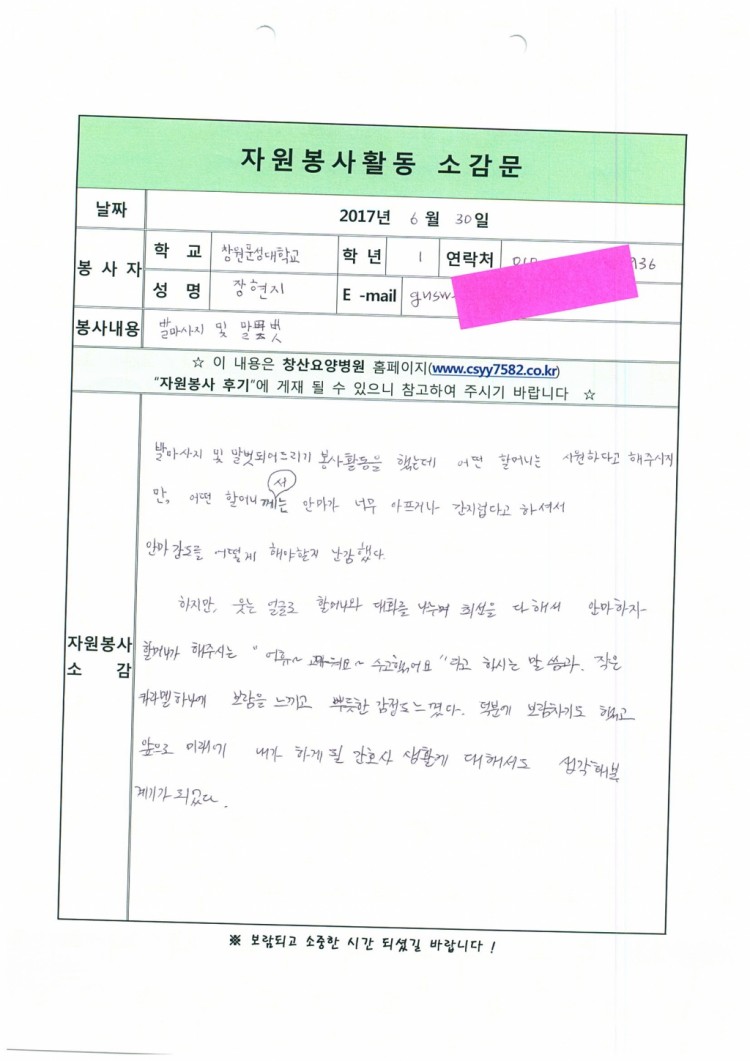 자원봉사활동 소감문
날짜 2017년 6월 30일
봉사자 학 교 창원문성대학교 학 년 1 연락처 010 936
성 명 장현지 E -mail gusw
봉사내용 발마사지 및 말벗
☆ 이 내용은 창산요양병원 홈페이지(www.csyy7582.co.kr)
"자원봉사 후기"에 게재 될 수 있으니 참고하여 주시기 바랍니다 ☆
발마사지 및 말벗되어드리기 봉사활동을 했는데 어떤 할머니는 시원하다고 해주시지
만, 어떤 할머니께서는 안마가 너무 아프거나 간지럽다고 하셔서
안마 강도를 어떻게 해야할지 난감했다.
하지만, 웃는 얼굴로 할머니와 대화를 나누며 최선을 다해서 안마하자
자원봉사 할머니가 해주시는 "어휴~ 고마워요~ 수고했어요"라고 하시는 말씀과, 작은
소 감 카라멜하나에 보람을 느끼고 뿌듯한 감정도 느꼈다. 덕분에 보람차기도 했고
앞으로 미래에 내가 하게 될 간호사 생활에 대해서도 생각해볼
계기가 되었다.
※ 보람되고 소중한 시간 되셨길 바랍니다 !